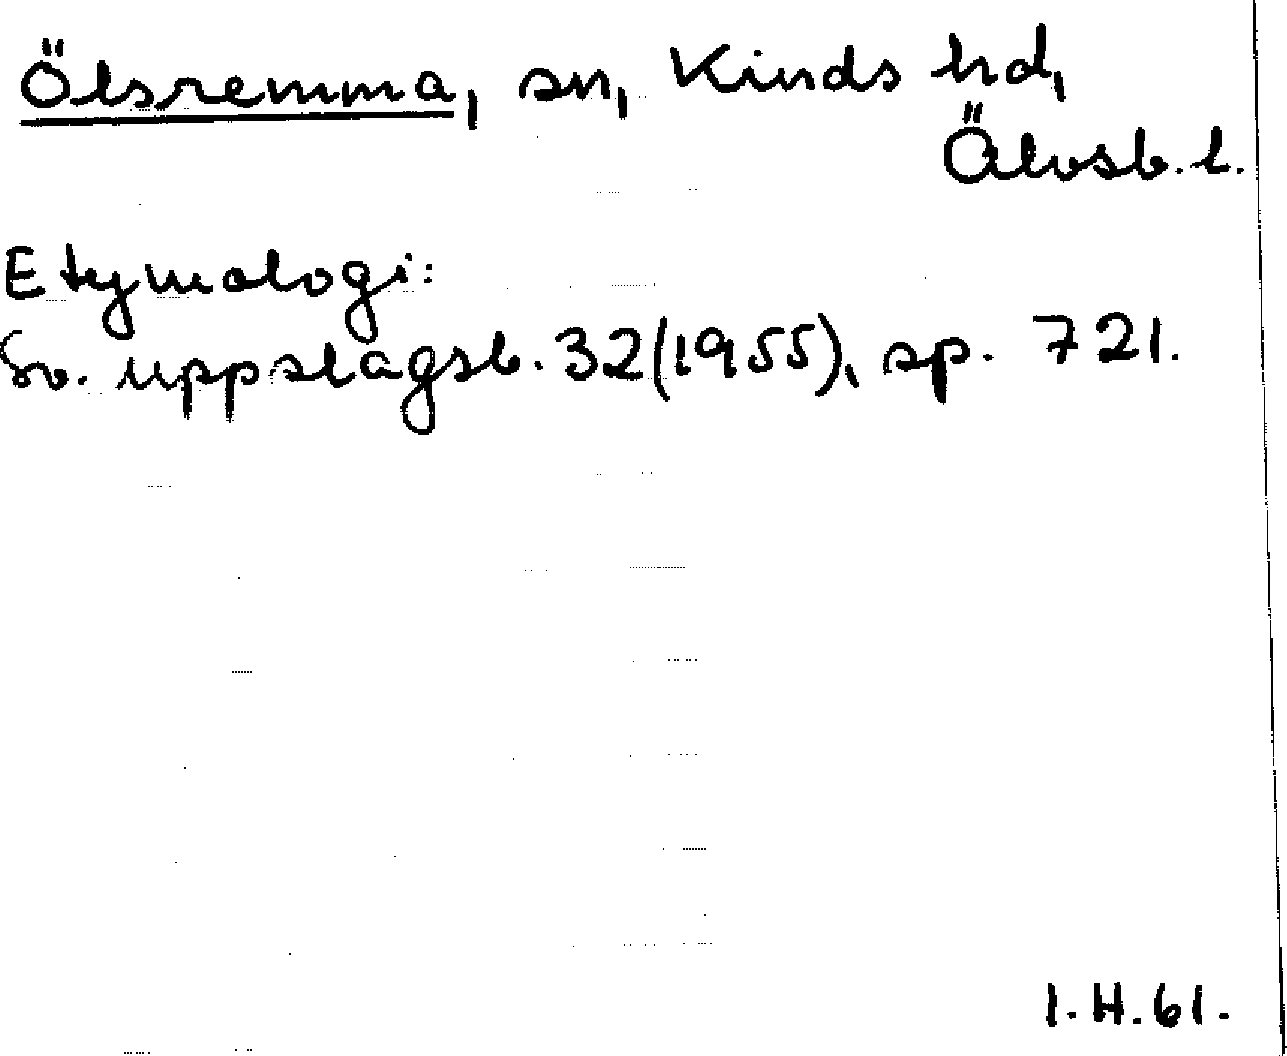 Ölsremma, sn, Kinds hd,
Älvsb. l.
Etymologi:
Sv. uppslagsb. 32 (1955), sp. 721.
I. H. 61.